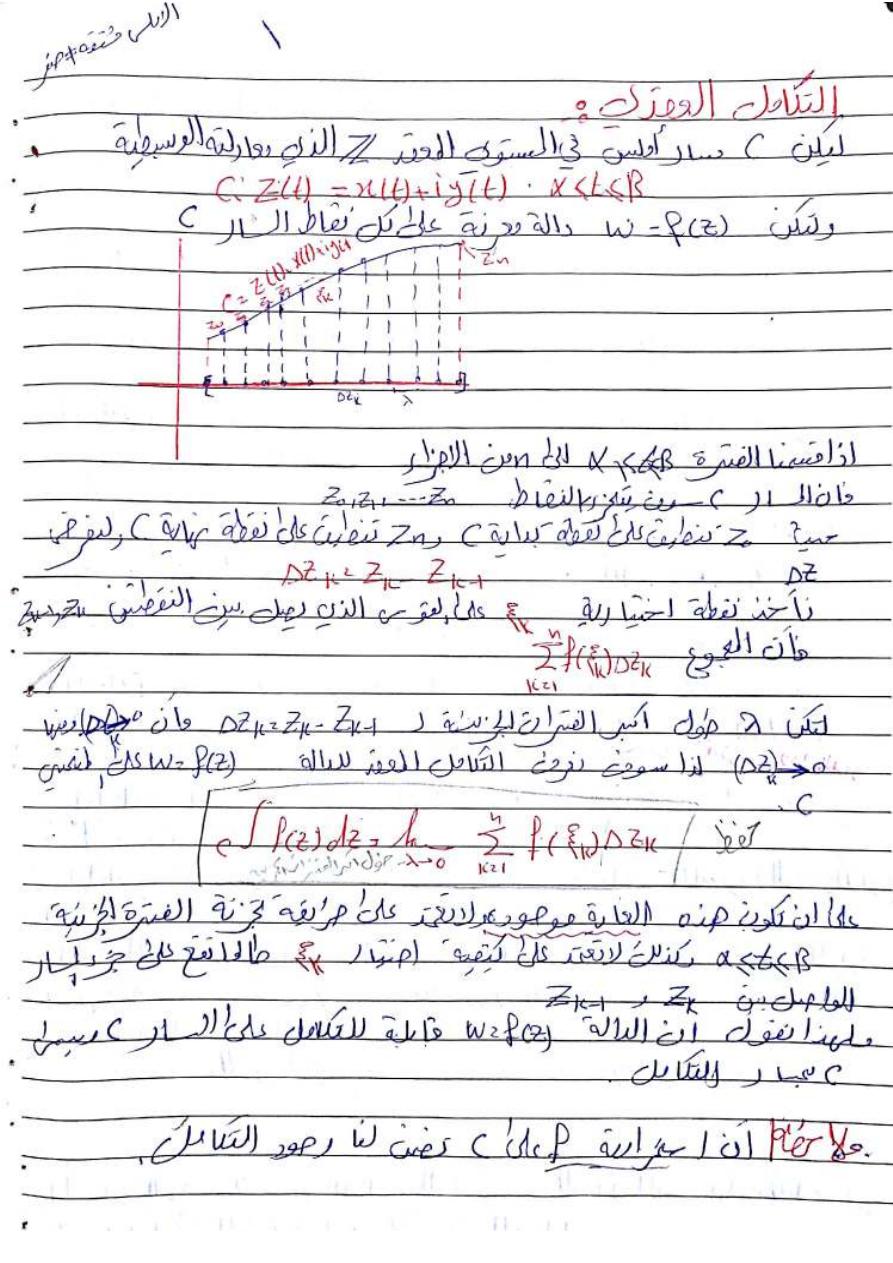 الاملس مشتقه ≠ صفر
١
التكامل العقدي :
ليكن C مسار أملس في المستوى العقد Z الذي معادلته الوسيطية
C: Z(t) = x(t) + iy(t) . α ≤ t ≤ β
ولتكن W = f(z) دالة معرفة على كل نقاط المسار C
C = Z(t) = x(t) + iy(t)
z₀ z₁ z₂ ξₖ Zn
Δzₖ λ
اذا قسمنا الفترة α ≤ t ≤ β الى n من الاجزاء
فان المسار C سوف يتجزء بالنقاط Z₀, Z₁, ---- Zn
حيث Z₀ تنطبق على نقطة بداية C و Zn تنطبق على نقطة نهاية C ولنفرض
ΔZ ΔZₖ = Zₖ - Zₖ₋₁
نأخذ نقطة اختيارية ξₖ على القوس الذي يصل بين النقطتين Zₖ₋₁, Zₖ
فأن المجموع ∑ₖ₌₁ⁿ f(ξₖ) ΔZₖ
لتكن λ طول اكبر الفترات الجزئية لـ ΔZₖ = Zₖ - Zₖ₋₁ وأن
(ΔZ)ₖ → 0 لذا سوف نعرف التكامل العقد للدالة W = f(z) على المنحني
C .
تحفظ / ∫c f(z) dz = lim λ→0 ∑ₖ₌₁ⁿ f(ξₖ) ΔZₖ
طول اكبر الفترات الجزئية
على ان تكون هذه الغاية موجودة ولا تعتمد على طريقة تجزئة الفترة الجزئية
α ≤ t ≤ β وكذلك لا تعتمد على كيفية اختيار ξₖ طالما تقع على جزء المسار
الواصل بين Zₖ و Zₖ₋₁
ولهذا نقول أن الدالة W = f(z) قابلة للتكامل على المسار C ويسمى
C بمسار التكامل .
ملاحظة / أن استمرارية f على C تضمن لنا وجود التكامل .